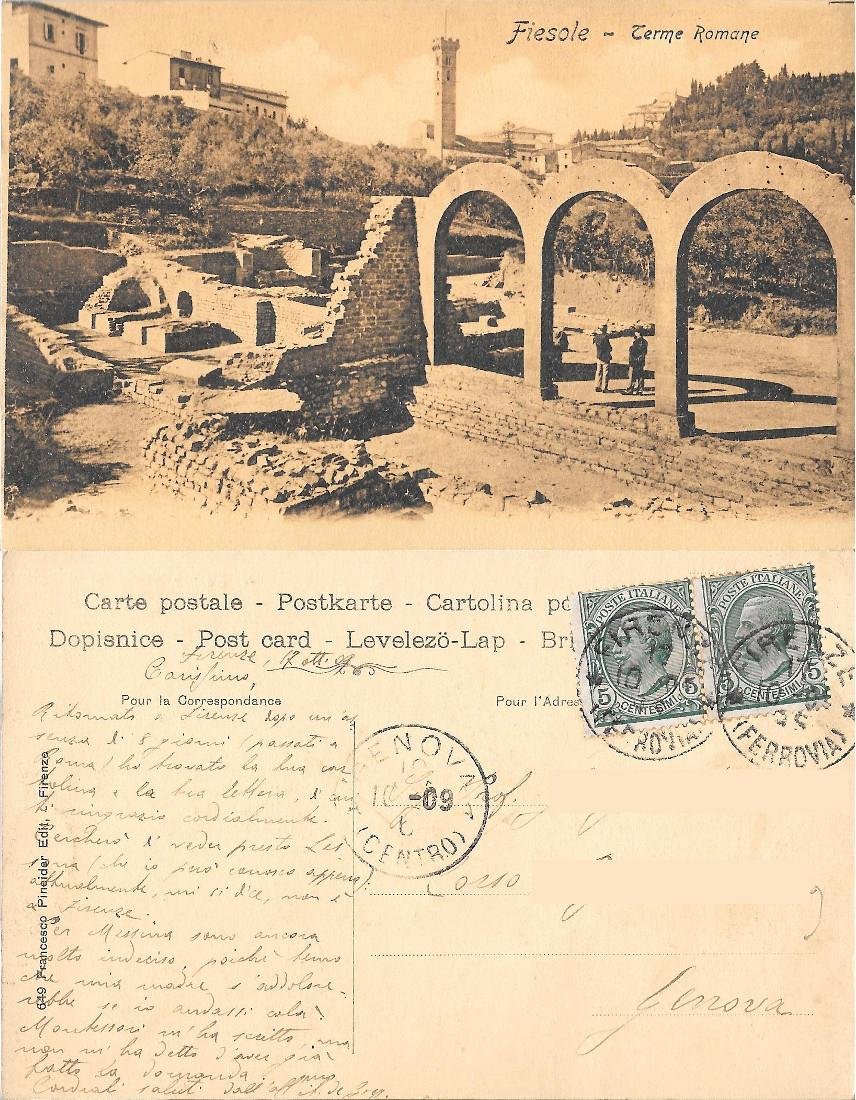 Fiesole - Terme Romane
Carte postale - Postkarte - Cartolina po
Dopisnice - Post card - Levelezö-Lap - Bri
POSTE ITALIANE
5 CENTESIMI 5
POSTE ITALIANE
5 CENTESIMI 5
FIRENZE
(FERROVIA)
FIRENZE
(FERROVIA)
Firenze, 17 ott.
Carissimo,
Pour la Correspondance
Pour l'Adres
Ritornato a Firenze dopo un'as
senza di 8 giorni (passati a
Roma) ho trovato la tua car
tolina e la tua lettera, di cui
ti ringrazio cordialmente.
Cercherò di veder presto Les
sona (che io però conosco appena):
attualmente, mi si dice, non è
a Firenze.
Per Messina sono ancora
molto indeciso, poiché temo
che mia madre s'addolore-
rebbe se io andassi colà.
Montessori m'ha scritto, ma
non m'ha detto d'aver già
fatto la domanda.
Cordiali saluti dall'aff
GENOVA
-09
(CENTRO)
Prof.
Corso
Genova
649 Francesco Pineider Edit, L. Firenze